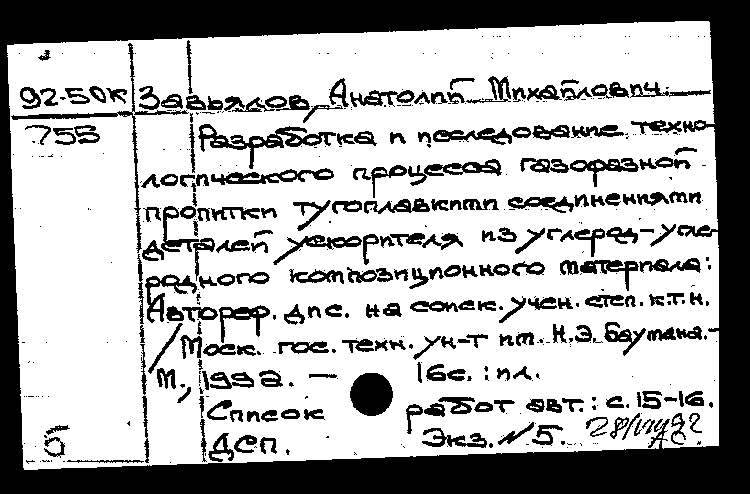 92-50К Завьялов, Анатолий Михайлович.
755 Разработка и исследование техно-
логического процесса газофазной
пропитки тугоплавкими соединениями
деталей ускорителя из углерод-угле-
родного композиционного материала:
Автореф. дис. на соиск. учен. степ. к.т.н.
/ Моск. гос. техн. ун-т им. Н.Э. Баумана.-
М., 1992. — 16с. : ил.
Список работ авт.: с. 15-16.
б ДСП. Экз. N 5.